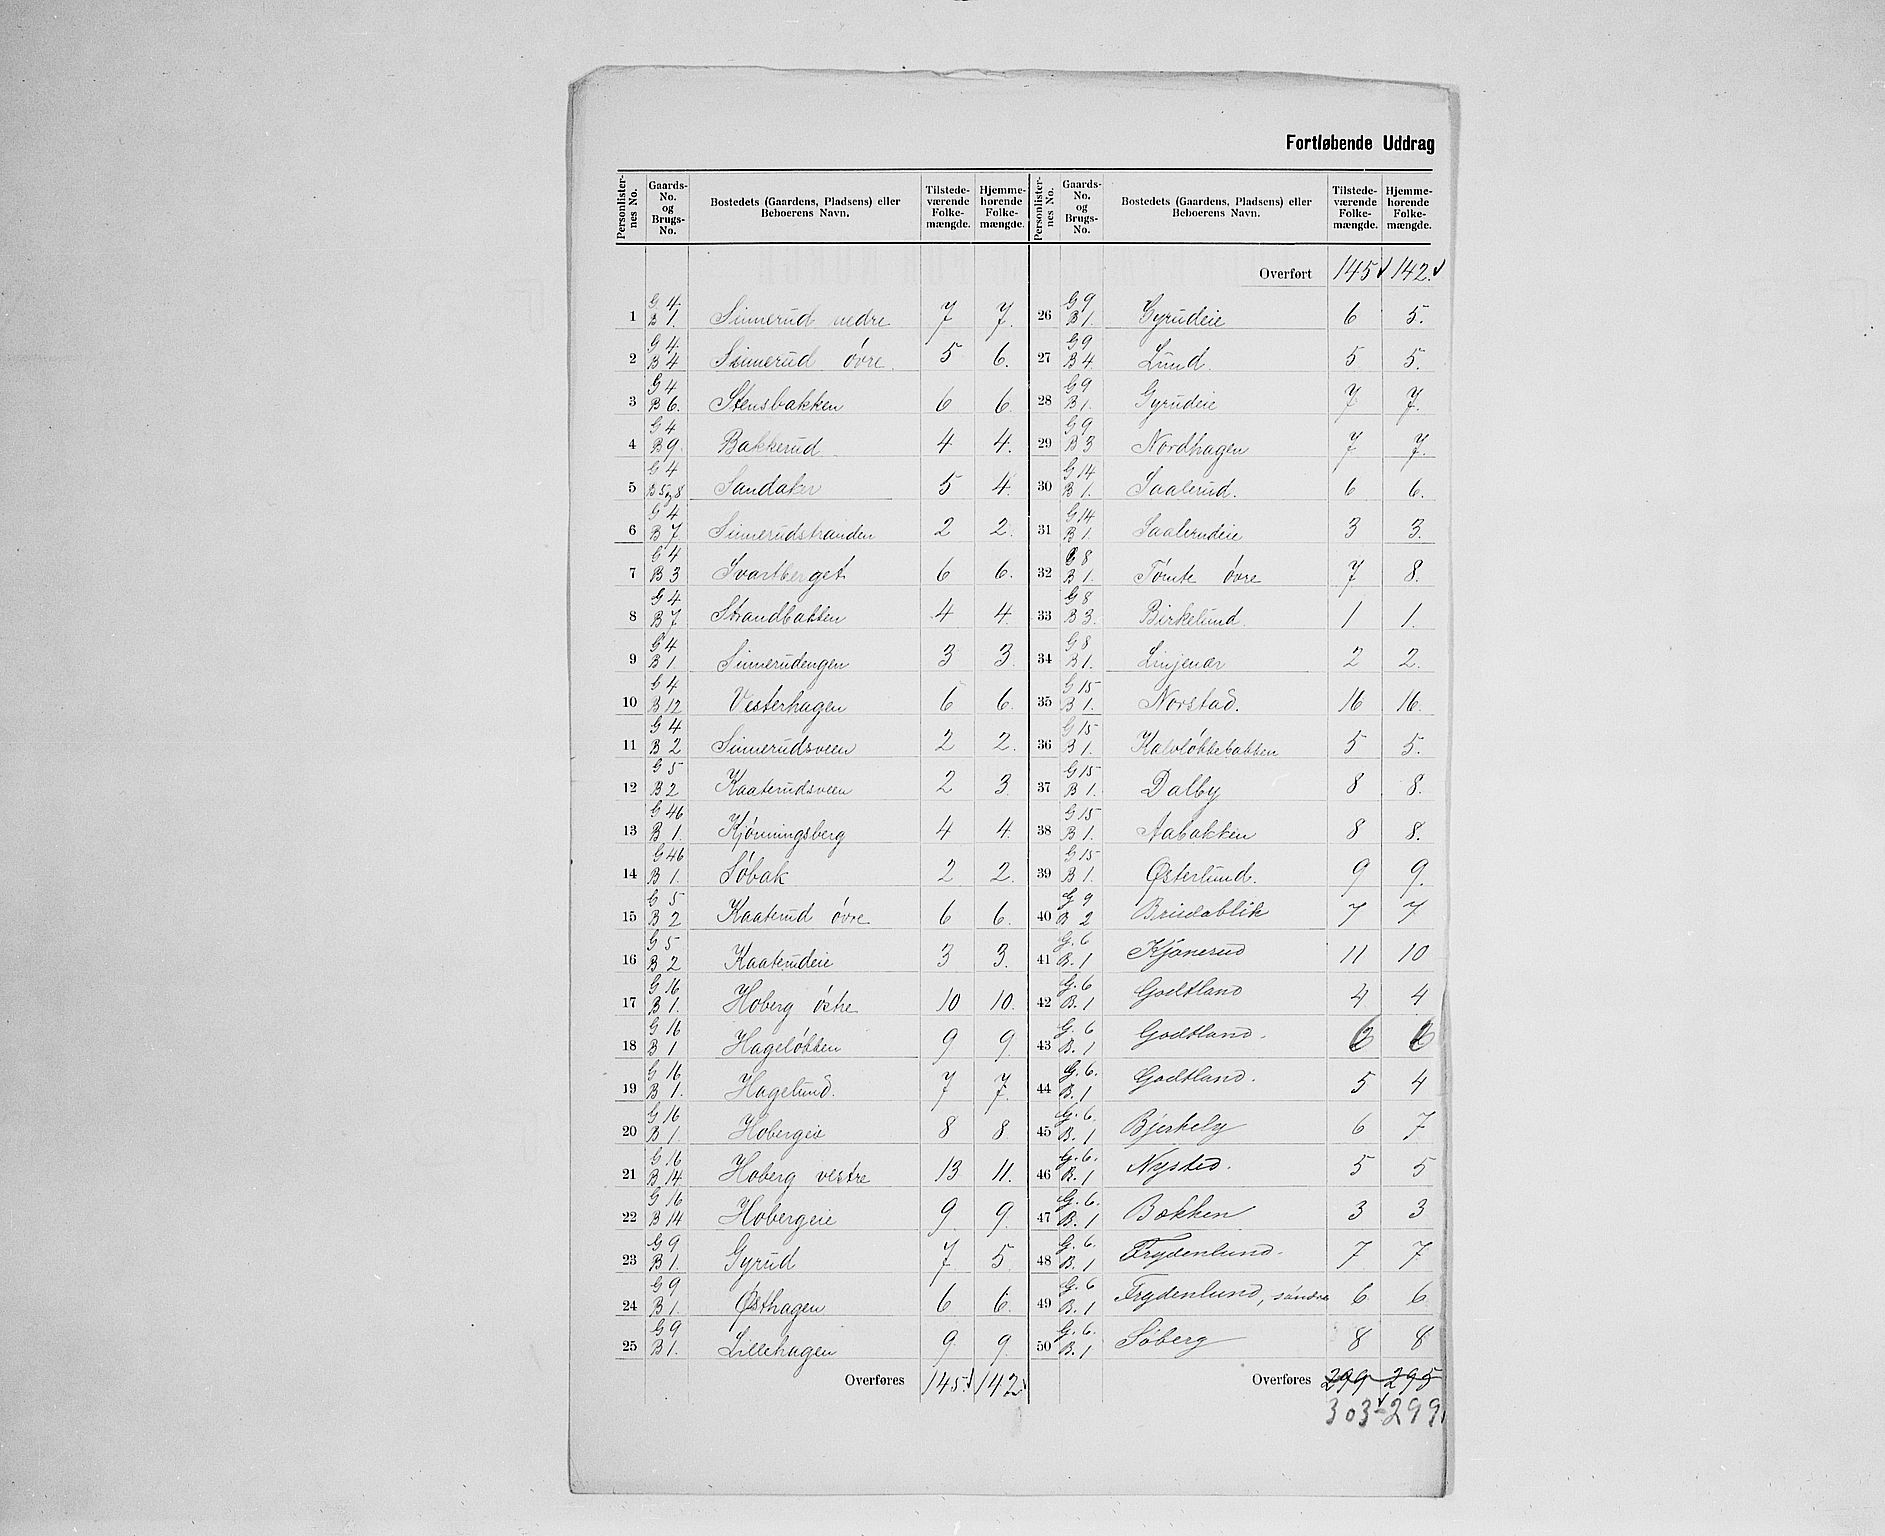 Fortløbende Uddrag
Personlisternes No. | Gaards-No. og Brugs-No. | Bostedets (Gaardens, Pladsens) eller Beboerens Navn. | Tilstedeværende Folkemængde. | Hjemmehørende Folkemængde.
1 | G 4 B 1. | Sinnerud nedre | 7 | 7.
2 | G 4 B 4 | Sinnerud övre. | 5 | 6.
3 | G 4 B 6. | Stensbakken | 6 | 6.
4 | G 4 B 9. | Bakkerud | 4 | 4.
5 | G 4 B 5 og 8 | Sandaker | 5 | 4.
6 | G 4 B 7 | Sinnerudstranden | 2 | 2.
7 | G 4 B 3 | Svartberget | 6 | 6.
8 | G 4 B 7 | Strandbakken | 4 | 4.
9 | G 4 B 1. | Sinnerudengen | 3 | 3.
10 | G 4 B 12 | Vesterhagen | 6 | 6.
11 | G 4 B 2 | Sinnerudsveen | 2 | 2.
12 | G 5 B 2 | Kaaterudsveen | 2 | 3.
13 | G 46 B 1. | Kjönningsberg | 4 | 4.
14 | G 46 B 1. | Söbak | 2 | 2.
15 | G 5 B 2 | Kaaterud övre | 6 | 6.
16 | G 5 B 2 | Kaaterudeie | 3 | 3.
17 | G 16 B 1. | Hoberg östre | 10 | 10.
18 | G 16 B 1 | Hagelökken | 9 | 9.
19 | G 16 B 1. | Hagelund. | 7 | 7.
20 | G 16 B 1. | Hobergeie | 8 | 8.
21 | G 16 B 14. | Hoberg vestre | 13 | 11.
22 | G 16 B 14 | Hobergeie | 9 | 9.
23 | G 9 B 1. | Gyrud | 7 | 5.
24 | G 9 B 1. | Østhagen | 6 | 6.
25 | G 9 B 1. | Lillehagen | 9 | 9.
Overføres | 145. | 142.
Personlisternes No. | Gaards-No. og Brugs-No. | Bostedets (Gaardens, Pladsens) eller Beboerens Navn. | Tilstedeværende Folkemængde. | Hjemmehørende Folkemængde.
Overført | 145 | 142.
26 | G 9 B 1. | Gyrudeie | 6 | 5.
27 | G 9 B 4. | Lund. | 5 | 5.
28 | G 9 B 1. | Gyrudeie | 7 | 7.
29 | G 9 B 3 | Nordhagen | 7 | 7.
30 | G 14 B 1. | Saalerud. | 6 | 6.
31 | G 14 B 1. | Saalerudeie | 3 | 3.
32 | G 8 B 1. | Tömte övre | 7 | 8.
33 | G 8 B 3. | Birkelund. | 1 | 1.
34 | G 8 B 1. | | 2 | 2.
35 | G 15 B 1. | Norstad. | 16 | 16.
36 | G 15 B 1. | Kalvlökkebakken | 5 | 5.
37 | G 15 B 1. | Dalby | 8 | 8.
38 | G 15 B 1. | Aabakken | 8 | 8.
39 | G 15 B 1. | Østerlund. | 9 | 9.
40 | G 9 B 2 | Briedablik | 7 | 7
41 | G. 6 B. 1 | Kjönerud | 11 | 10
42 | G. 6 B. 1 | Godtland | 4 | 4
43 | G. 6 B. 1 | Godtland. | 6 | 6
44 | G. 6. B. 1 | Godtland. | 5 | 4
45 | G. 6. B. 1 | Bjerkely | 6 | 7
46 | G. 6. B. 1 | Nysted. | 5 | 5
47 | G. 6. B. 1 | Bakken | 3 | 3
48 | G. 6. B. 1 | Frydenlund. | 7 | 7
49 | G. 6 B. 1 | Frydenlund, söndre | 6 | 6
50 | G. 6. B. 1 | Söberg | 8 | 8
Overføres | 299 | 295
303 | 299